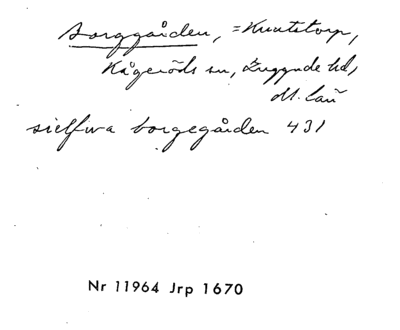 Borggården, =Knutstorp,
Kågeröds sn, Luggude hd,
M. län
sielfwa borgegården 431
Nr 11964 Jrp 1670